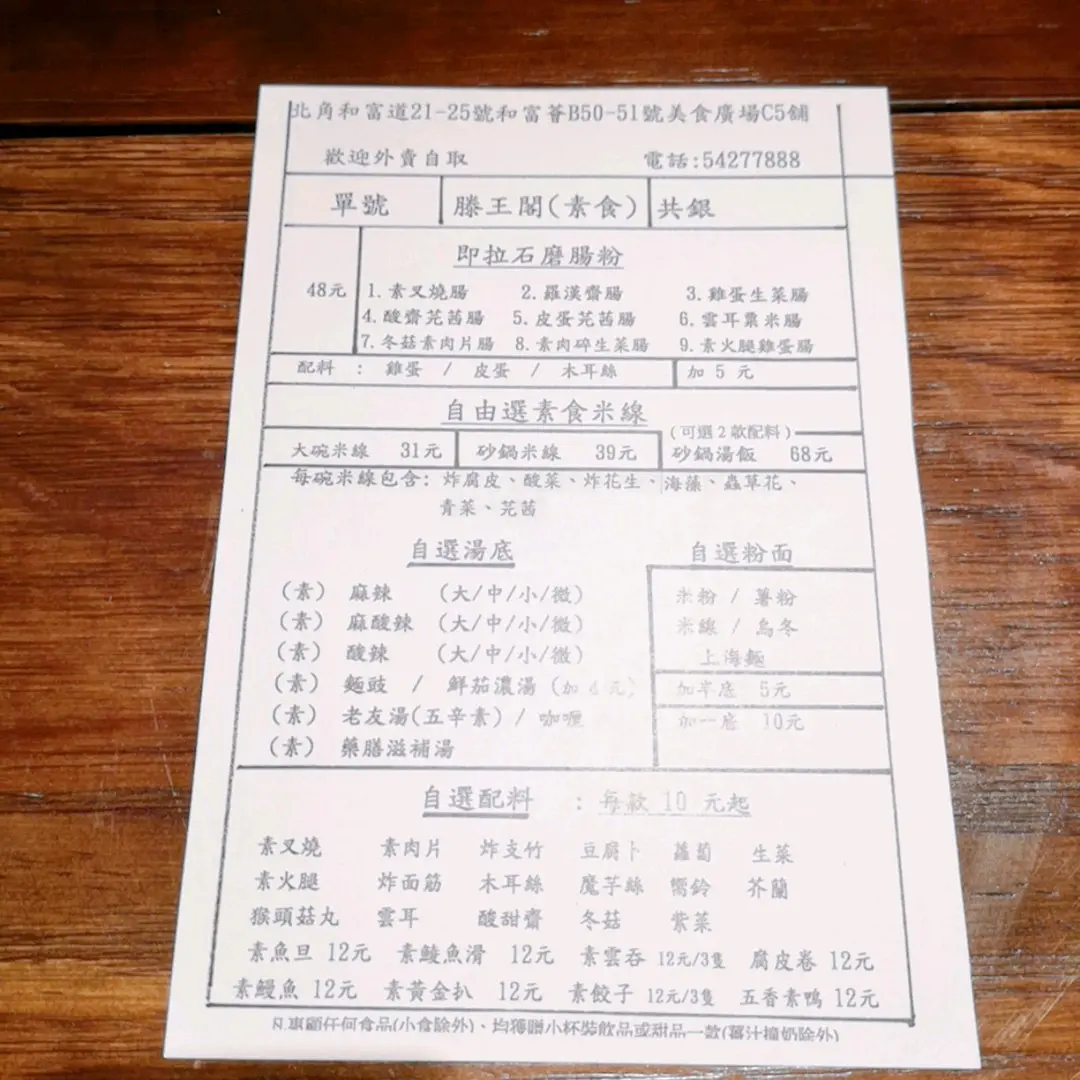 北角和富道21-25號和富薈B50-51號美食廣場C5舖
歡迎外賣自取 電話:54277888
單號 滕王閣(素食) 共銀
即拉石磨腸粉
48元 1.素叉燒腸 2.羅漢齋腸 3.雞蛋生菜腸
4.酸齋芫茜腸 5.皮蛋芫茜腸 6.雲耳粟米腸
7.冬菇素肉片腸 8.素肉碎生菜腸 9.素火腿雞蛋腸
配料 : 雞蛋 / 皮蛋 / 木耳絲 加 5 元
自由選素食米線
(可選2款配料)
大碗米線 31元 砂鍋米線 39元 砂鍋湯飯 68元
每碗米線包含: 炸腐皮、酸菜、炸花生、海藻、蟲草花、
青菜、芫茜
自選湯底 自選粉面
(素) 麻辣 (大/中/小/微) 米粉 / 薯粉
(素) 麻酸辣 (大/中/小/微) 米線 / 烏冬
(素) 酸辣 (大/中/小/微) 上海麵
(素) 麵豉 / 鮮茄濃湯 (加 4 元) 加半底 5元
(素) 老友湯(五辛素) / 咖喱 加一底 10元
(素) 藥膳滋補湯
自選配料 : 每款 10 元起
素叉燒 素肉片 炸支竹 豆腐卜 蘿蔔 生菜
素火腿 炸面筋 木耳絲 魔芋絲 響鈴 芥蘭
猴頭菇丸 雲耳 酸甜齋 冬菇 紫菜
素魚旦 12元 素鯪魚滑 12元 素雲吞 12元/3隻 腐皮卷 12元
素鰻魚 12元 素黃金扒 12元 素餃子 12元/3隻 五香素鴨 12元
凡惠顧任何食品(小食除外)、均獲贈小杯裝飲品或甜品一款(薑汁撞奶除外)